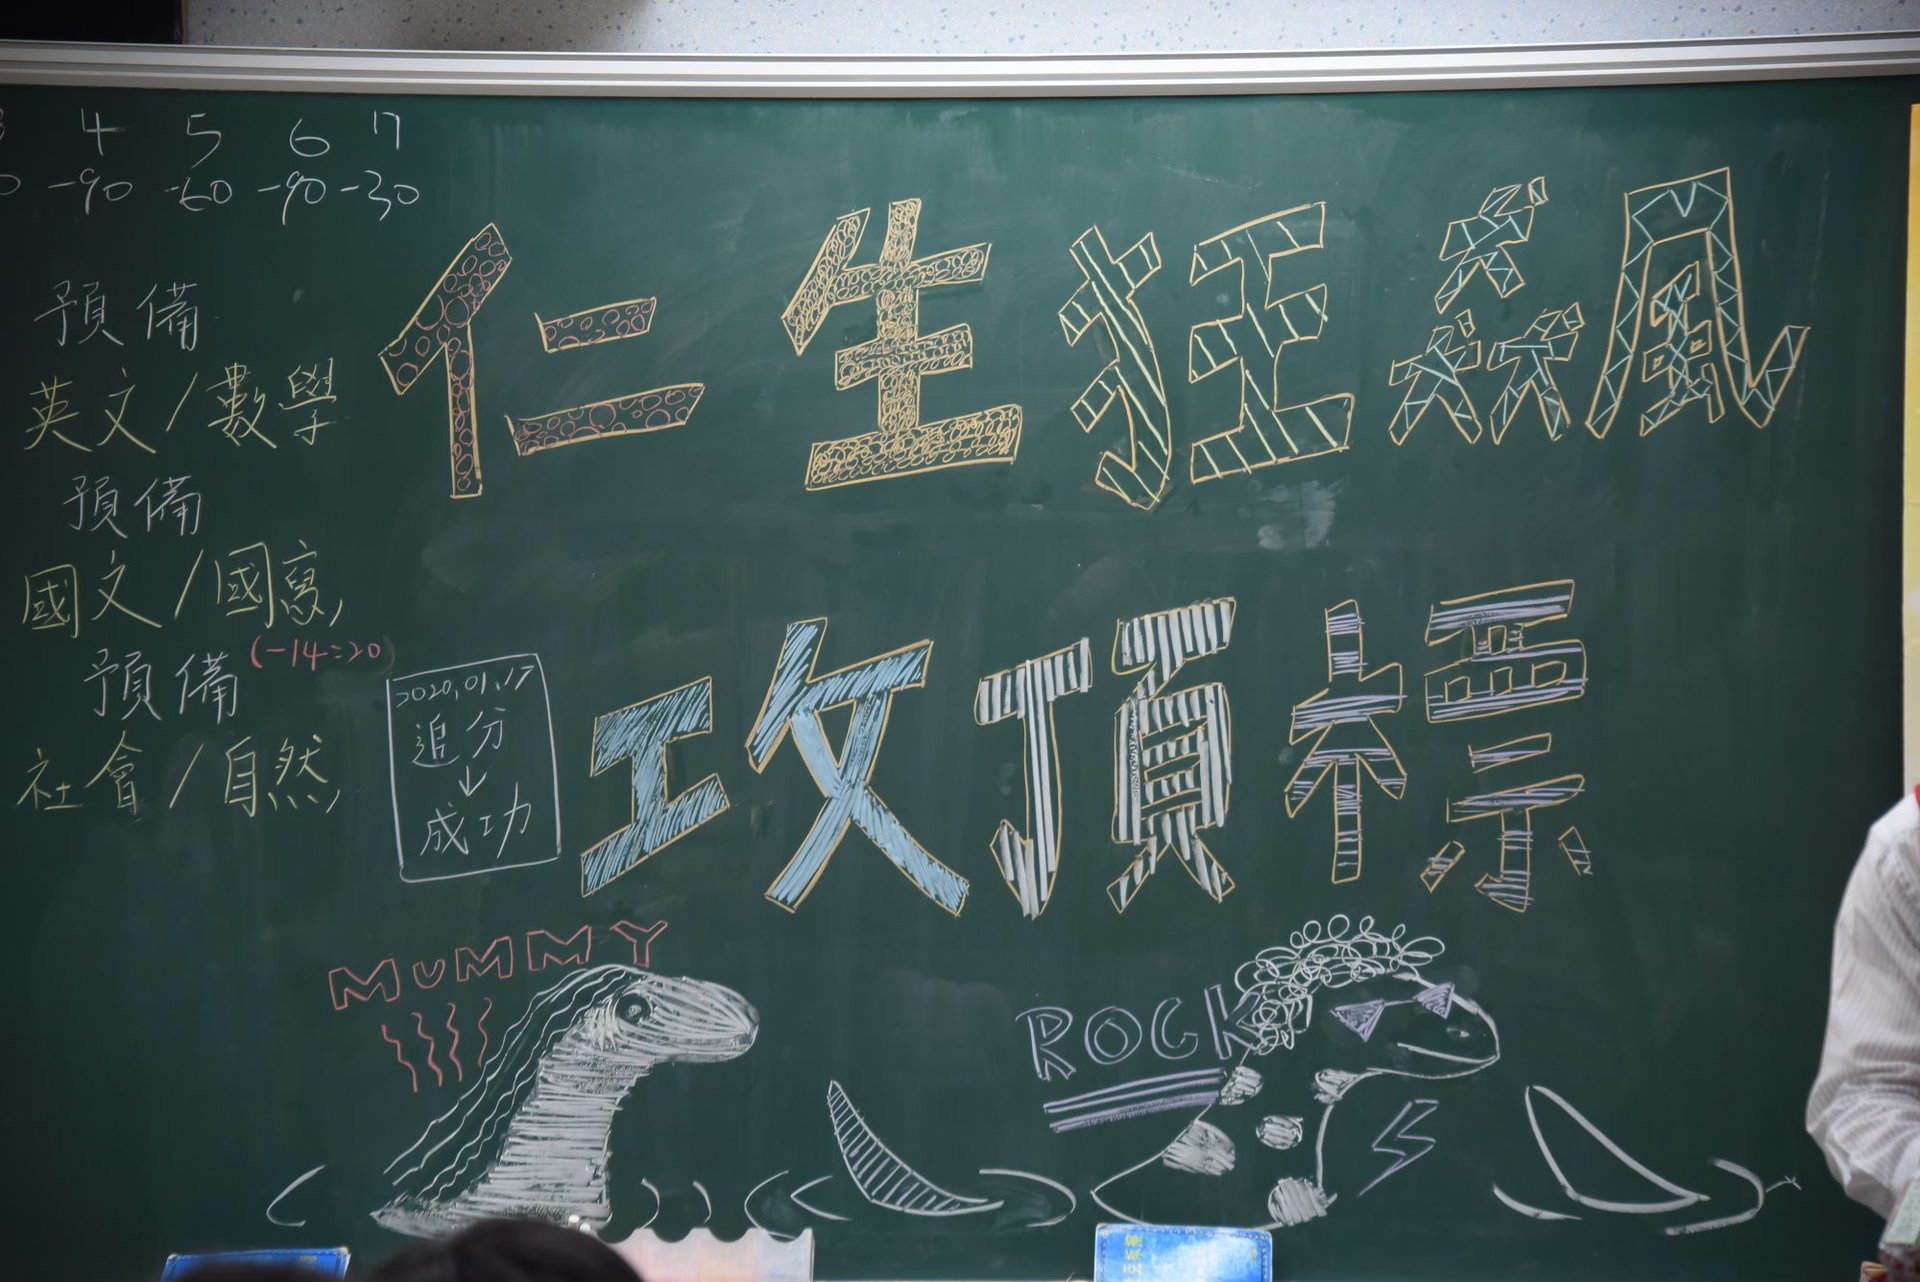 4 5 6 7
-90 -60 -90 -30
仁生狂猋風
預備
英文/數學
預備
國文/國寫
預備 (-14=20)
社會/自然
2020.01.17
追分
↓
成功
攻頂標
MUMMY
ROCK